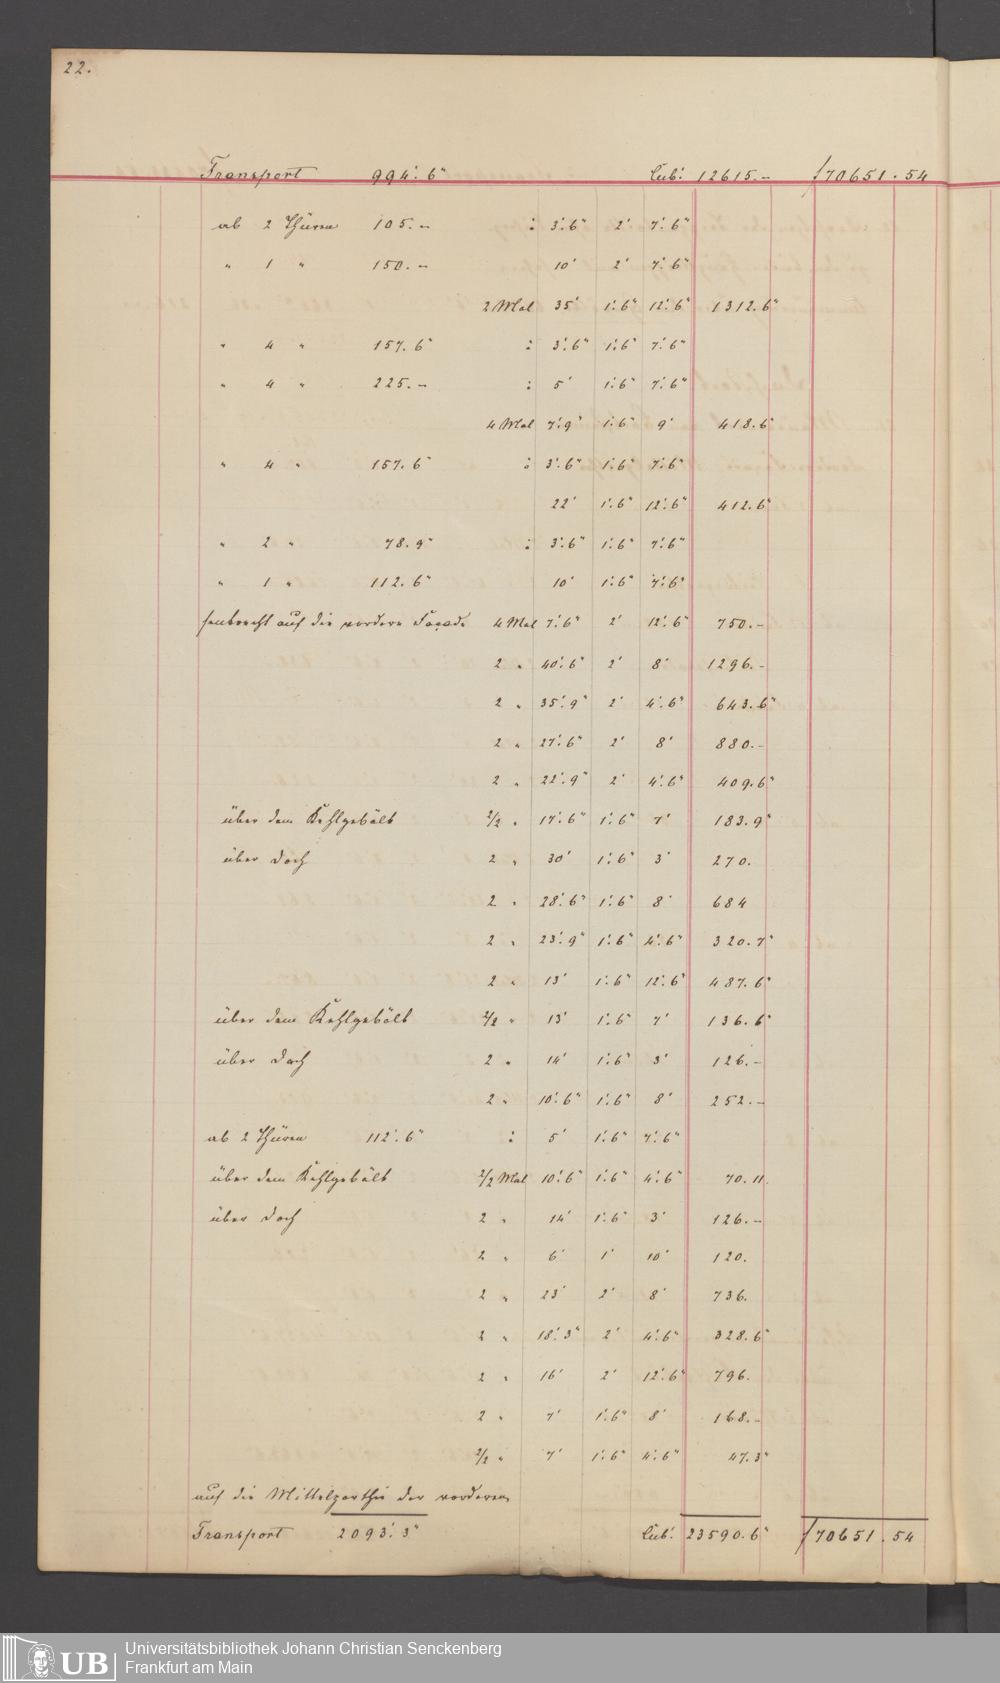 22.
Transport 994'. 6" Cub'. 12615.- f 70651. 54
ab 2 Thüren 105.- : 3'. 6" 2' 7'. 6"
" 1 " 150.- 10' 2' 7'. 6"
2 Mal 35' 1'. 6" 12'. 6" 1312. 6"
" 4 " 157. 6" : 3'. 6" 1'. 6" 7'. 6"
" 4 " 225.- : 5' 1'. 6" 7'. 6"
4 Mal 7'. 9" 1'. 6" 9' 418. 6"
" 4 " 157. 6" : 3'. 6" 1'. 6" 7'. 6"
22' 1'. 6" 12'. 6" 412. 6"
" 2 " 78. 9" : 3'. 6" 1'. 6" 7'. 6"
" 1 " 112. 6" 10' 1'. 6" 7'. 6"
senkrecht auf die vordere Façade 4 Mal 7'. 6" 2' 12'. 6" 750.-
2 " 40'. 6" 2' 8' 1296.-
2 " 35'. 9" 2' 4'. 6" 643. 6"
2 " 27'. 6" 2' 8' 880.-
2 " 22'. 9" 2' 4'. 6" 409. 6"
über dem Kehlgebälk 2/2 " 17'. 6" 1'. 6" 7' 183. 9"
über Dach 2 " 30' 1'. 6" 3' 270.
2 " 28'. 6" 1'. 6" 8' 684
2 " 23'. 9" 1'. 6" 4'. 6" 320. 7"
2 " 13' 1'. 6" 12'. 6" 487. 6"
über dem Kehlgebälk 2/2 " 13' 1'. 6" 7' 136. 6"
über Dach 2 " 14' 1'. 6" 3' 126.-
2 " 10'. 6" 1'. 6" 8' 252.-
ab 2 Thüren 112'. 6" : 5' 1'. 6" 7'. 6"
über dem Kehlgebälk 2/2 Mal 10'. 6" 1'. 6" 4'. 6" 70. 11.
über Dach 2 " 14' 1'. 6" 3' 126.-
2 " 6' 1' 10' 120.
2 " 23' 2' 8' 736.
2 " 18'. 3" 2' 4'. 6" 328. 6"
2 " 16' 2' 12'. 6" 796.
2 " 7' 1'. 6" 8' 168.-
2/2 " 7' 1'. 6" 4'. 6" 47. 3"
auf die Mittelparthie der vorderen
Transport 2093'. 3" Cub'. 23590. 6" f 70651. 54
UB Universitätsbibliothek Johann Christian Senckenberg
Frankfurt am Main